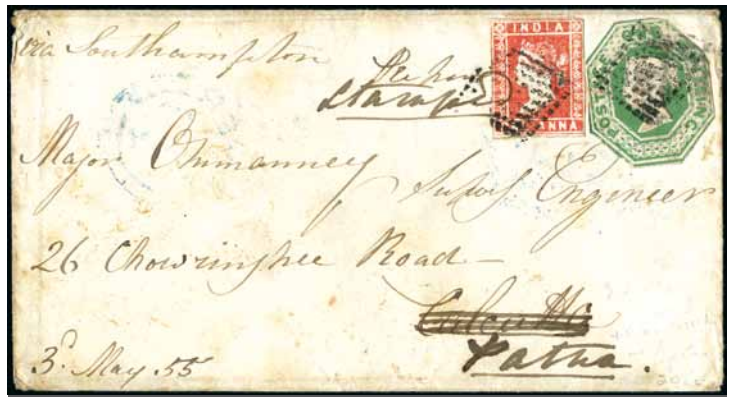 via Southampton
stamped
INDIA
ANNA
POSTAGE
Major Ommanney
Engineer
26 Chowringhee Road -
Calcutta
Patna.
3d May. 55